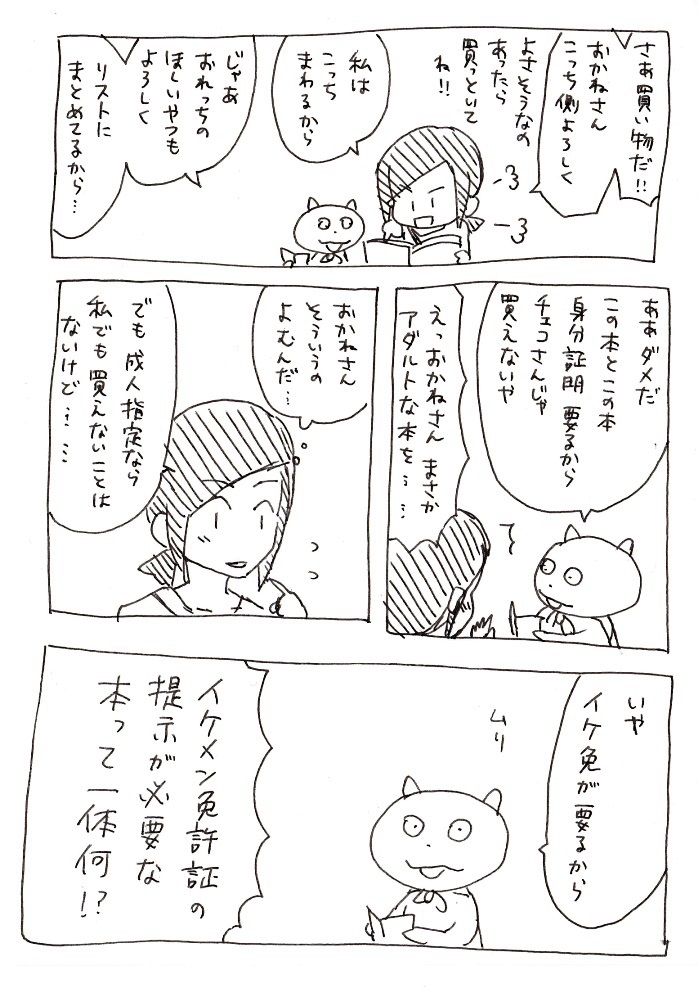 さぁ買い物だ!!
おかねさん
こっち側よろしく
よさそうなの
あったら
買っといて
ね!!
私は
こっち
まわるから
じゃあ
おれっちの
ほしいやつも
よろしく
リストに
まとめてるから…
ああダメだ
この本とこの本
身分証明要るから
チェコさんじゃ
買えないや
えっおかねさんまさか
アダルトな本を……
おかねさん
そういうの
よむんだ…
でも成人指定なら
私でも買えないことは
ないけど……
いや
イケ免が要るから
ムリ
イケメン免許証の
提示が必要な
本って一体何!?